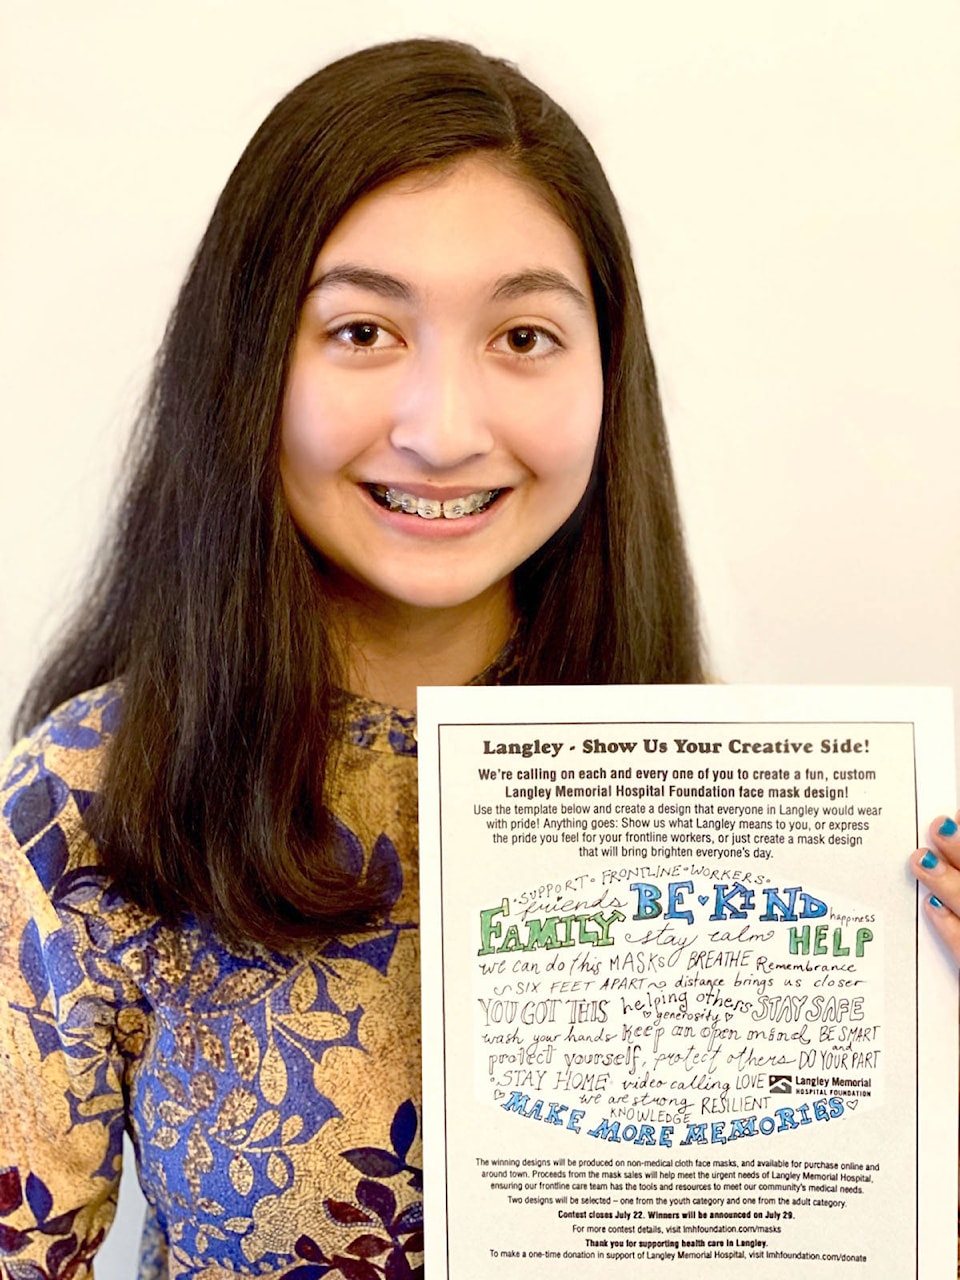 Langley - Show Us Your Creative Side!
We're calling on each and every one of you to create a fun, custom
Langley Memorial Hospital Foundation face mask design!
Use the template below and create a design that everyone in Langley would wear
with pride! Anything goes: Show us what Langley means to you, or express
the pride you feel for your frontline workers, or just create a mask design
that will bring brighten everyone's day.
SUPPORT FRONTLINE WORKERS
friends BE KIND happiness
FAMILY stay calm HELP
we can do this MASKS BREATHE Remembrance
SIX FEET APART distance brings us closer
YOU GOT THIS helping others STAY SAFE
generosity
wash your hands keep an open mind, BE SMART
and
protect yourself, protect others DO YOUR PART
STAY HOME video calling LOVE Langley Memorial
HOSPITAL FOUNDATION
we are strong RESILIENT
KNOWLEDGE
MAKE MORE MEMORIES
The winning designs will be produced on non-medical cloth face masks, and available for purchase online and
around town. Proceeds from the mask sales will help meet the urgent needs of Langley Memorial Hospital,
ensuring our frontline care team has the tools and resources to meet our community's medical needs.
Two designs will be selected – one from the youth category and one from the adult category.
Contest closes July 22. Winners will be announced on July 29.
For more contest details, visit lmhfoundation.com/masks
Thank you for supporting health care in Langley.
To make a one-time donation in support of Langley Memorial Hospital, visit lmhfoundation.com/donate